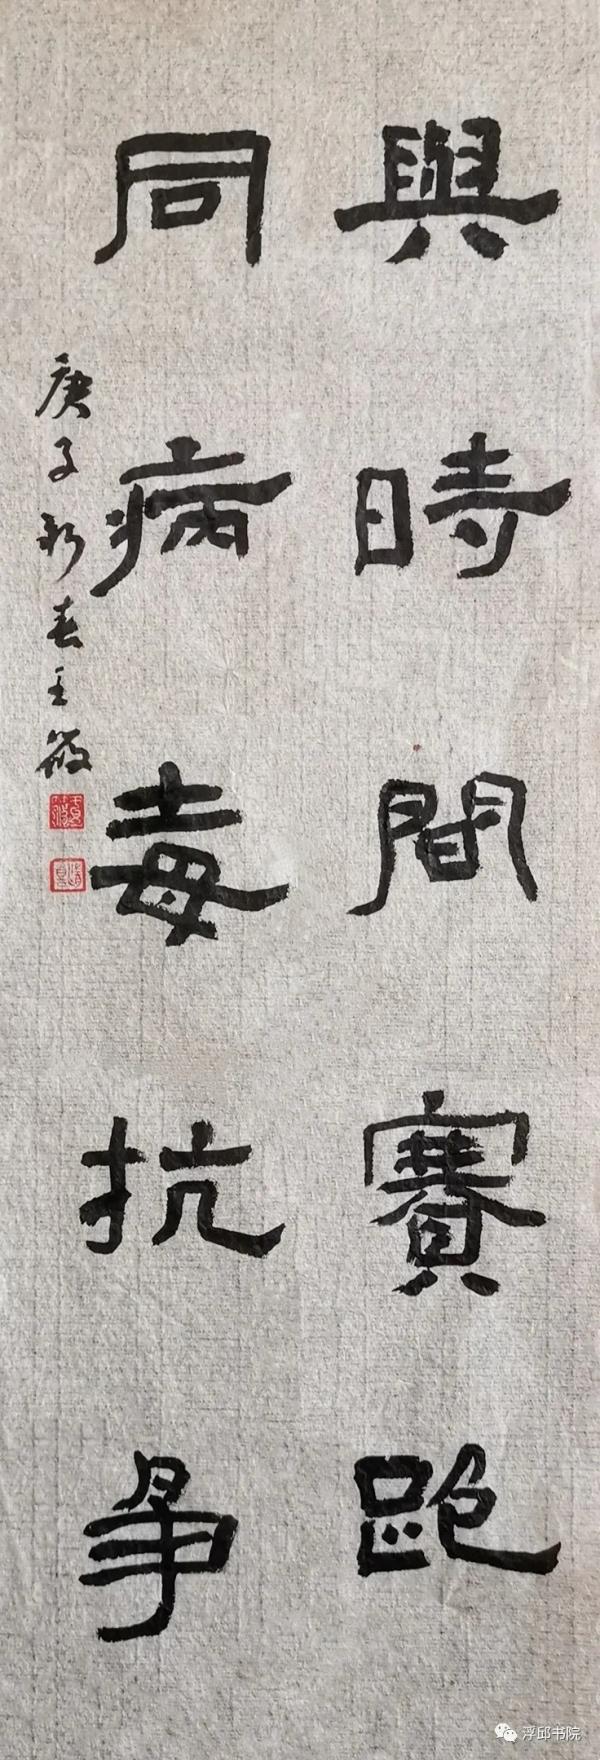 與時間賽跑
同病毒抗争
庚子新春王筱
浮邱书院